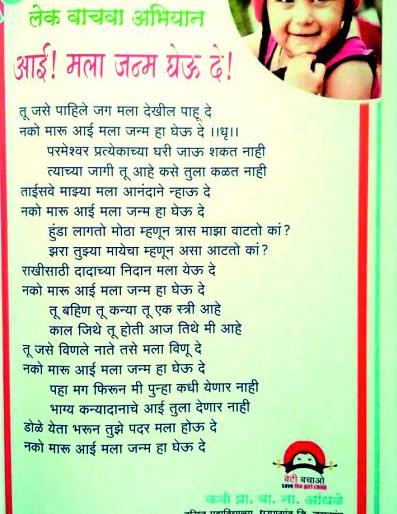 लेक वाचवा अभियान
आई! मला जन्म घेऊ दे!
तू जसे पाहिले जग मला देखील पाहू दे
नको मारू आई मला जन्म हा घेऊ दे ।।धृ।।
परमेश्वर प्रत्येकाच्या घरी जाऊ शकत नाही
त्याच्या जागी तू आहे कसे तुला कळत नाही
ताईसवे माझ्या मला आनंदाने न्हाऊ दे
नको मारू आई मला जन्म हा घेऊ दे
हुंडा लागतो मोठा म्हणून त्रास माझा वाटतो कां?
झरा तुझ्या मायेचा म्हणून असा आटतो कां?
राखीसाठी दादाच्या निदान मला येऊ दे
नको मारू आई मला जन्म हा घेऊ दे
तू बहिण तू कन्या तू एक स्त्री आहे
काल जिथे तू होती आज तिथे मी आहे
तू जसे विणले नाते तसे मला विणू दे
नको मारू आई मला जन्म हा घेऊ दे
पहा मग फिरून मी पुन्हा कधी येणार नाही
भाग्य कन्यादानाचे आई तुला देणार नाही
डोळे येता भरून तुझे पदर मला होऊ दे
नको मारू आई मला जन्म हा घेऊ दे
बेटी बचाओ
SAVE THE GIRL CHILD
कवी प्रा. वा. ना. आंधळे